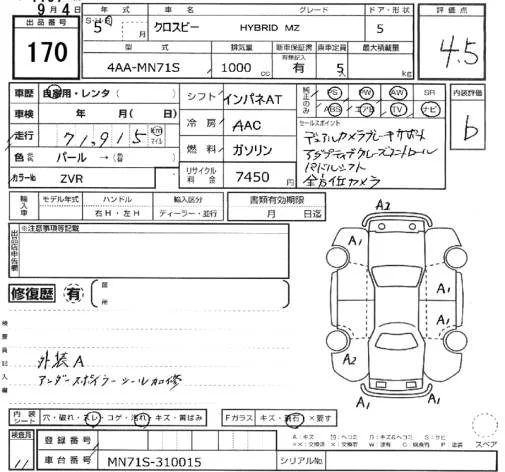 9月4日
年式 車名 グレード ドア・形状 評価点
出品番号 5年 月 クロスビー HYBRID MZ 5 4.5
170
型式 排気量 新車保証書 乗車定員 最大積載量
有無記入
4AA-MN71S 1000cc 有 5 kg
車歴 自家用・レンタ( ) シフト インパネAT 純正品のみ PS PW AW SR 内装評価
ABS エアB TV ナビ b
車検 年 月( 日) 冷房 AAC セールスポイント
デュアルカメラブレーキサポート
走行 71,915 km マイル 燃料 ガソリン アダプティブクルーズコントロール
パドルシフト
色 パール→( ) 全方位カメラ
カラーNo ZVR リサイクル料金 7450円
輸入車 モデル年式 ハンドル 輸入区分 書類有効期限
右H・左H ディーラー・並行 月 日迄
出品店申告欄 ※注意事項等記載
A2
A1
A1
A1
A1
A2
A1
A1
修復歴 有 箇所
検査員記入欄
外装A
アンダースポイラーシール加修
内装シート 穴・破れ・スレ・コゲ・汚れ・キズ・黄ばみ Fガラス キズ・飛石・×要す
スペア
検査員 登録番号
11 車台番号 MN71S-310015 シリアルNo.